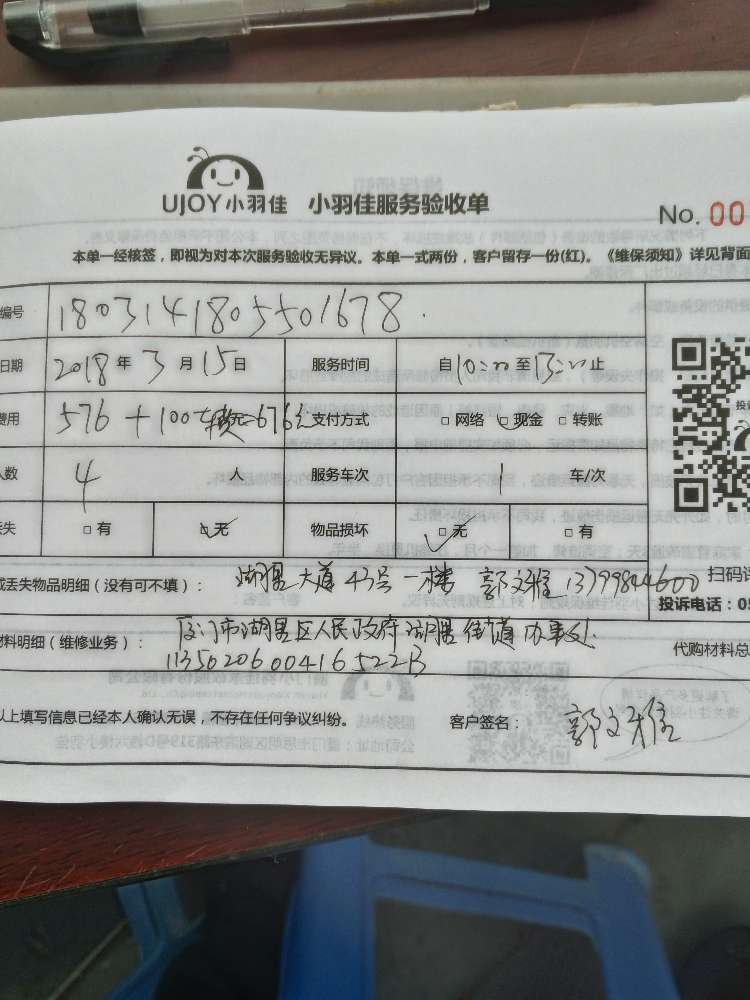 UJOY小羽佳 小羽佳服务验收单
No. 00
本单一经核签，即视为对本次服务验收无异议。本单一式两份，客户留存一份(红)。《维保须知》详见背面
编号 1803141805501678.
日期 2018 年 3 月 15 日 服务时间 自10:00 至 13:00 止
费用 576 + 100 = 676元 支付方式 □ 网络 □ 现金 □ 转账
人数 4 人 服务车次 1 车/次
失 □ 有 □ 无 物品损坏 □ 无 □ 有
或丢失物品明细（没有可不填）： 湖里大道43号一楼 郭文雅 13799844600 扫码
投诉电话：05
材料明细（维修业务）： 厦门市湖里区人民政府湖里街道办事处 代购材料总
11350206004165222B
以上填写信息已经本人确认无误，不存在任何争议纠纷。 客户签名： 郭文雅